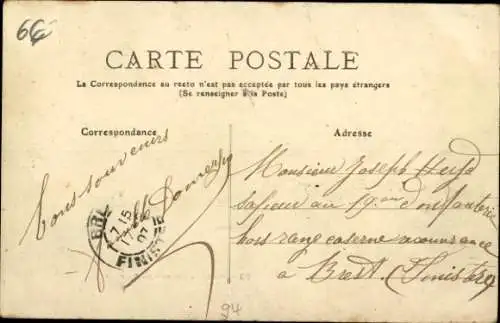 66
CARTE POSTALE
La Correspondance au recto n'est pas acceptée par tous les pays étrangers
(Se renseigner à la Poste)
Correspondance
Adresse
Bons souvenirs
Monsieur Joseph
sapeur au 19me d'infanterie
hors rang caserne
à Brest (Finistère)
7 15
07
FINISTERE
94